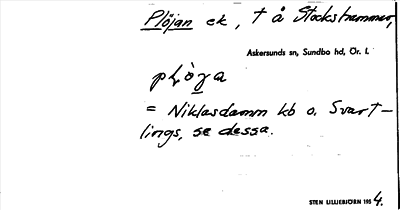 Plöjan ek, † å Stockshammar,
Askersunds sn, Sundbo hd, Ör. l.
plòya
= Niklasdamm kb o. Svart-
lings, se dessa.
STEN LILLIEBJÖRN 1954.